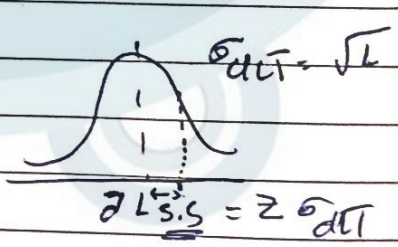 σdLT = √L
dL S.S = Z σdLT